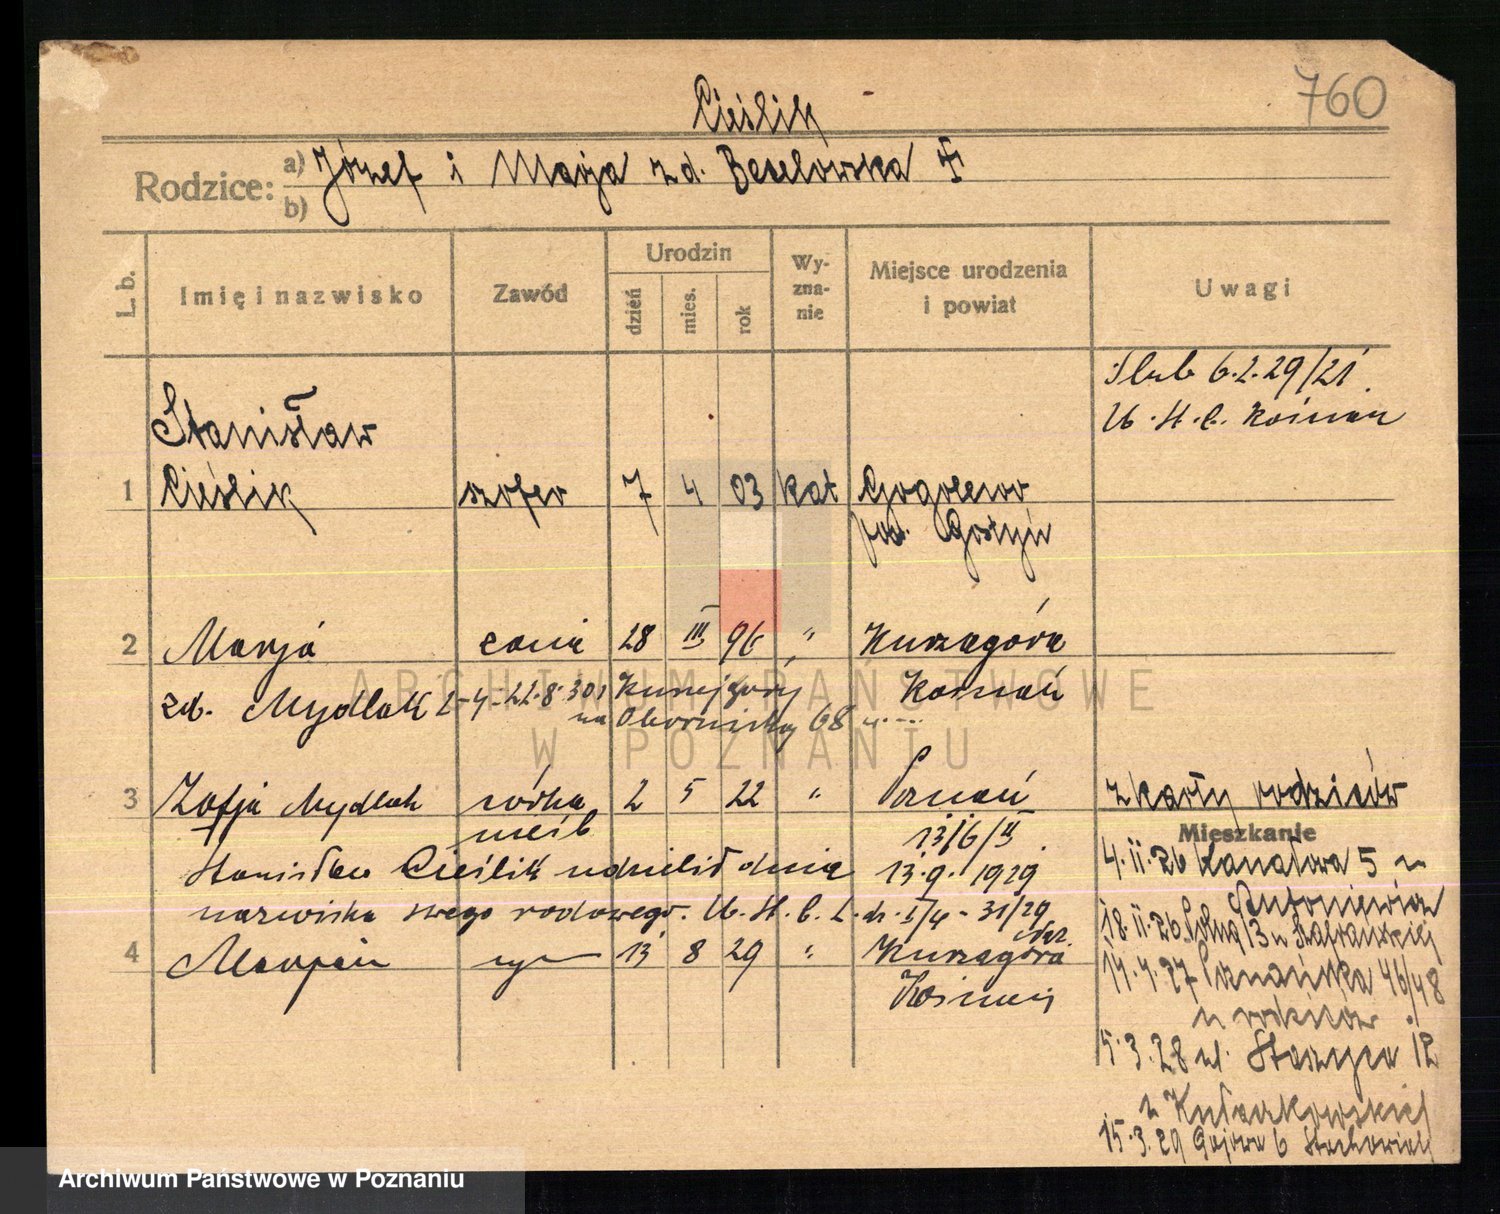 760
Cieślik
Rodzice: a) Józef i Marja zd. Beselowska
b)
L. b. Imię i nazwisko Zawód Urodzin dzień mies. rok Wyznanie Miejsce urodzenia i powiat Uwagi
Ślub 6.2.29/21
U. S. C. Kościan
Stanisław
1 Cieślik szofer 7 4 03 kat Gogolewo
pow. Gostyń
2 Marja żona 28 III 96 " Kurzagóra
zd. Mydlak Kościan
na 68
3 Zofja Mydlak córka 2 5 22 " Poznań
nieśl 13/6/II
Stanisław Cieślik udzielił dnia 13.9.1929
nazwiska swego rodowego. U. S. C. 31/29
4 Marjan syn 13 8 29 " Kurzagóra
Kościan
z karty rodziców
Mieszkanie
4.II.26 Kanałowa 5 u
Antoniewicz
18.II.26 13 u
14.4.27 Poznańska 46/48
u rodziców
5.3.28 ul. Staszyca 12
u
15.3.29 Gajowa 6
ARCHIWUM PAŃSTWOWE
W POZNANIU
Archiwum Państwowe w Poznaniu